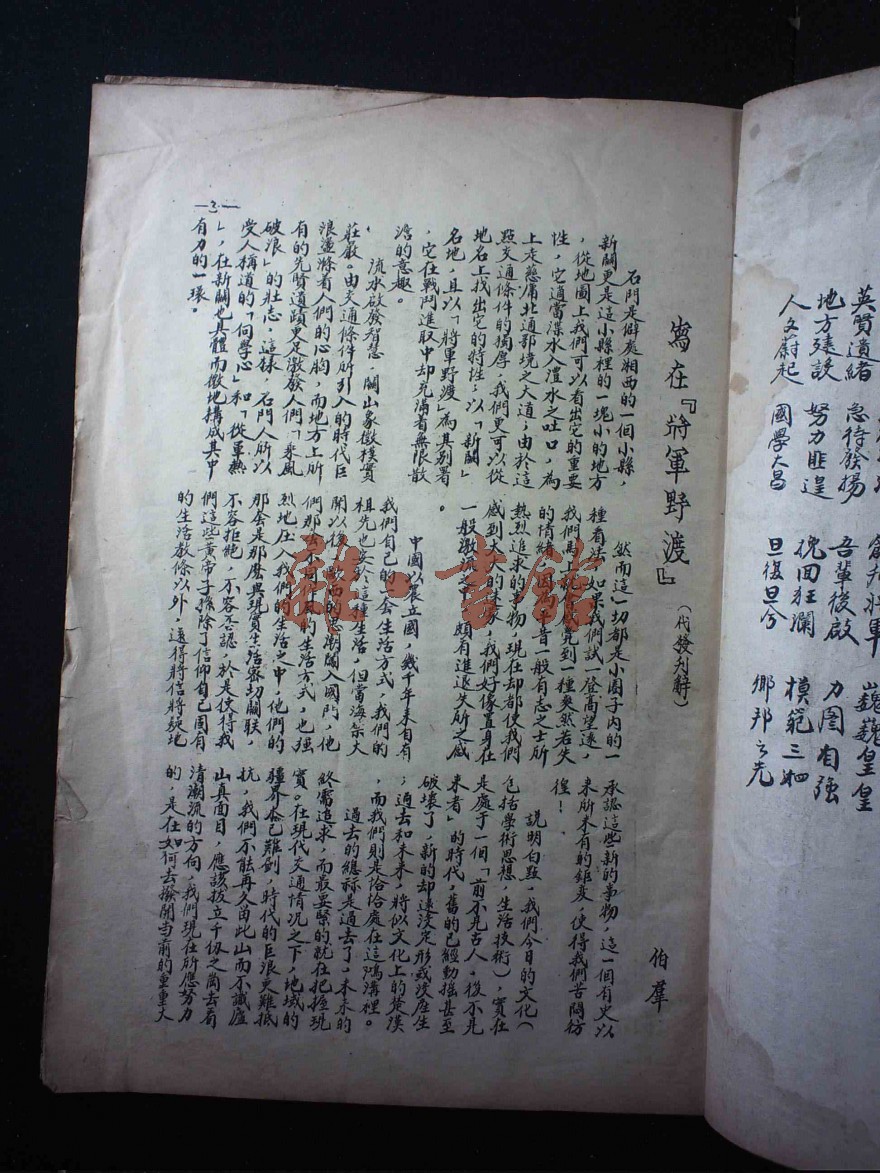 巍巍皇皇
英賢遺緒 急待發揚 吾輩後啟 力圖自強
地方建設 努力匪遑 挽回狂瀾 模範三湘
人文蔚起 國學大昌 旦復旦兮 鄉邦之光
寫在『將軍野渡』(代發刋辭) 伯羣
石門是僻處湘西的一個小縣,
新關更是這小縣裡的一塊小的地方
,從地圖上我們可以看出它的重要
性,它適當渫水入澧水之吐口,為
上走慈庸北通鄂境之大道;由於這
點交通條件的獨厚,我們更可以從
地名上找出它的特性,以「新關」
名地,且以「將軍野渡」為其別署
,它在戰鬥進取中却充滿着無限散
澹的意趣。
流水啟發智慧,關山象徵樸實
莊嚴。由交通條件所引入的時代巨
浪盪滌着人們的心胸,而地方上所
有的先賢遺蹟更是激發人們「乘風
破浪」的壯志,這樣,石門人所以
受人稱道的「向學心」和「從軍熱
」,在新關也具體而微地構成其中
有力的一環。
然而這一切都是小圈子內的一
種看法,如果我們試一登高望遠,
我們馬上就會覺到一種爽然若失
的情緒,因為平昔一般有志之士所
熱烈追求的事物,現在却都使我們
感到太大的昧,我們好像置身在
一般激流之中,頗有進退失所之感
。
中國以農立國,幾千年來自有
我們自己的農舍生活方式,我們的
祖先也安於這種生活,但當海禁大
開以後,的思潮闖入國門,他
們那的生活方式,也強
烈地压入我們的生活之中,他們的
那套是那麽與現實生活密切關联,
不容拒絕,不容否認,於是使得我
們這些黃帝子孫除了信仰自己固有
的生活教條以外,還得將信將疑地
承認這些新的事物,這一個有史以
來所未有的鉅变,使得我們苦悶彷
徨!
說明白點,我們今日的文化(
包括學術思想,生活技術),實在
是處于一個「前不見古人,後不見
來者」的時代,舊的已經動搖甚至
破壞了,新的却還沒定形或沒產生
;過去和未來,將似文化上的楚漢
,而我們則是恰恰處在這鴻溝裡。
過去的總祘是過去了,未來的
終需追求,而最要緊的就在把握現
實。在現代交通情况之下,地域的
疆界已难劃,時代的巨浪更難抵
抗,我們不能再久留此山而不識廬
山真面目,應該拔立千仭之崗去看
清潮流的方向,我們現在所應努力
的,是在如何去撥開当前的重重大
—3—
雜·書館